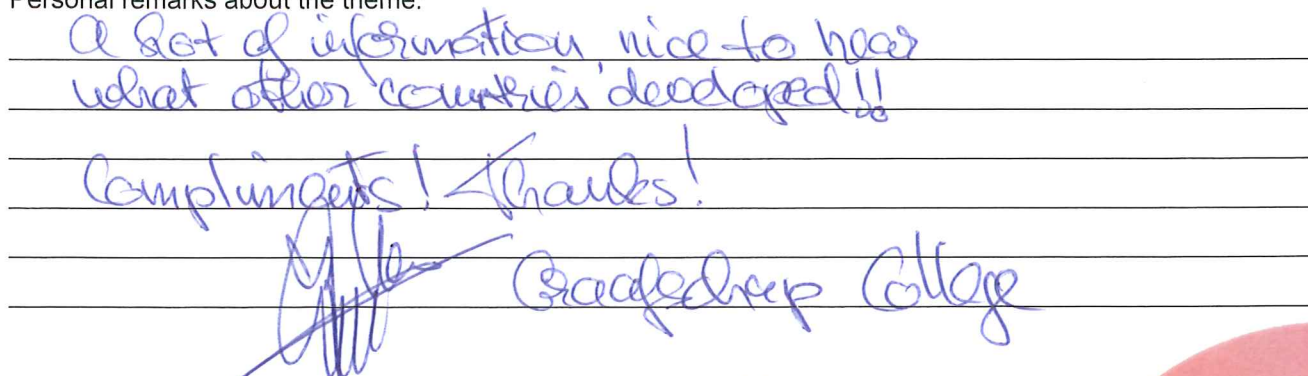 Personal remarks about the theme:
a lot of information, nice to hear
what other countries developed!!
Compliments! Thanks!
Graafschap College